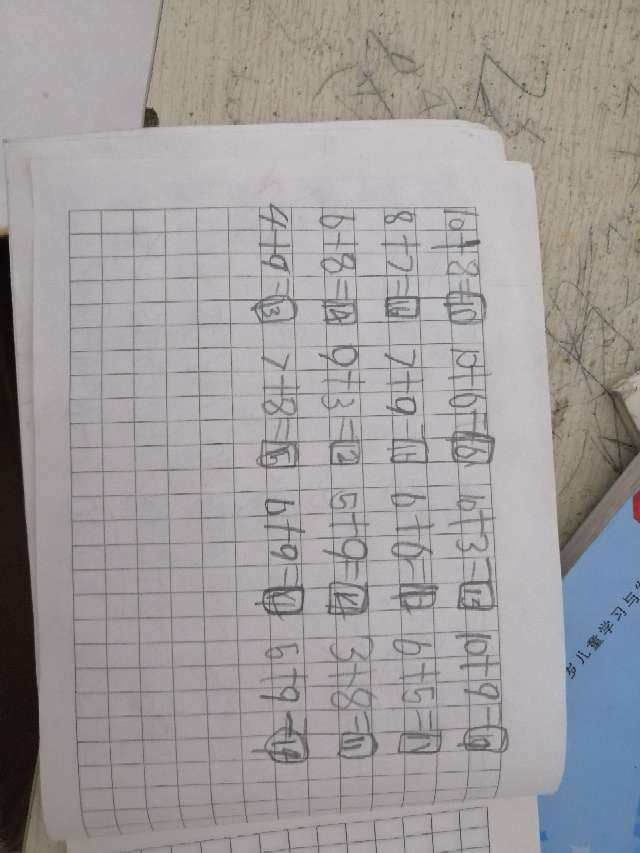 10+8= 10+6=16 10+3= 10+9=19
8+7= 7+9= 6+6=12 6+5=11
6+8=14 9+3=12 5+9=14 3+8=11
4+9=13 7+8=15 6+9= 5+9=14
岁儿童学习与